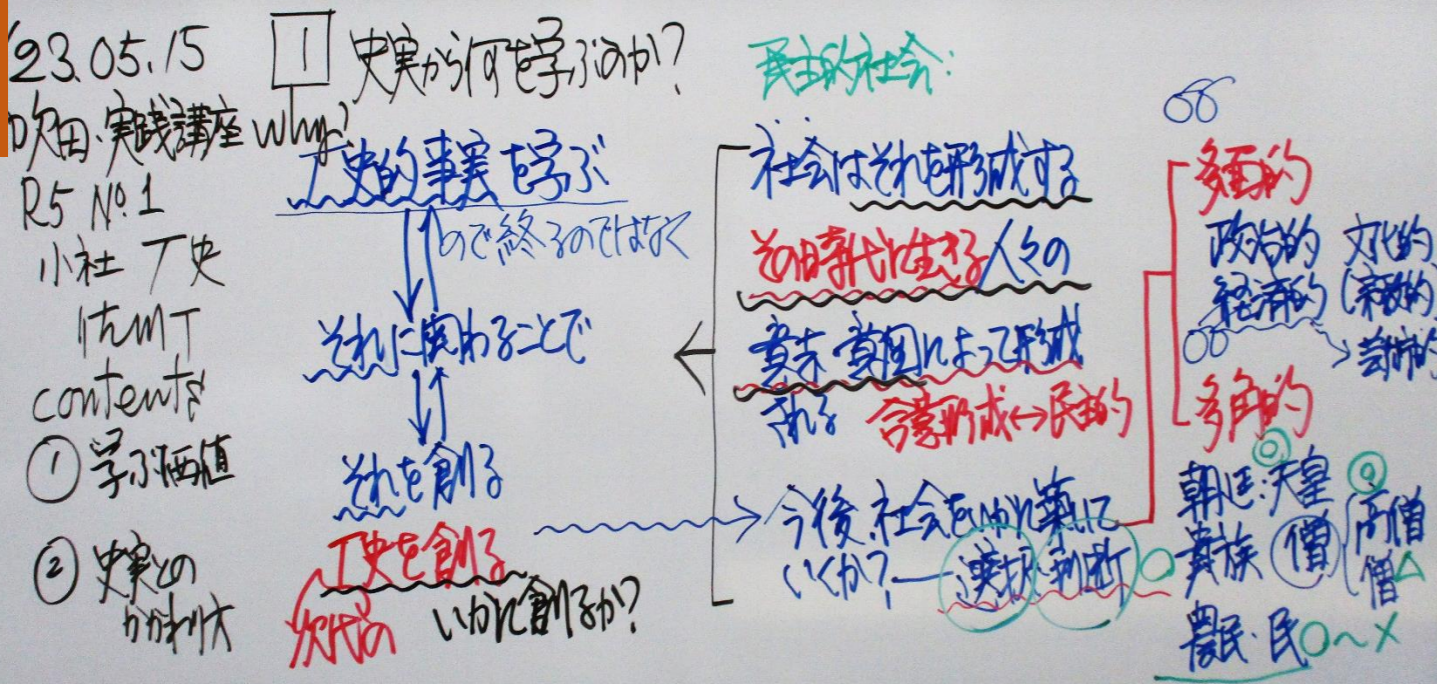 '23.05.15
吹田・実践講座
R5 No.1
小社 丁史
contents
① 学ぶ価値
② 史実との
かかわり方
1 史実から何を学ぶのか?
why?
丁史的事実を学ぶ
ので終るのではなく
それに関わることで
それを創る
丁史を創る
次代の
いかに創るか?
民主的社会:
社会はそれを形成する
その時代に生きる人々の
意志・意図によって形成
される 合意形成↔民主的
今後、社会をいかに築いて
いくか?ー選択・判断
多面的
政治的 文化的
経済的 (宗教的
芸術的
多角的
朝廷:天皇 ◎
貴族 僧 (高僧 ◎
僧 △
農民・民 ○~×